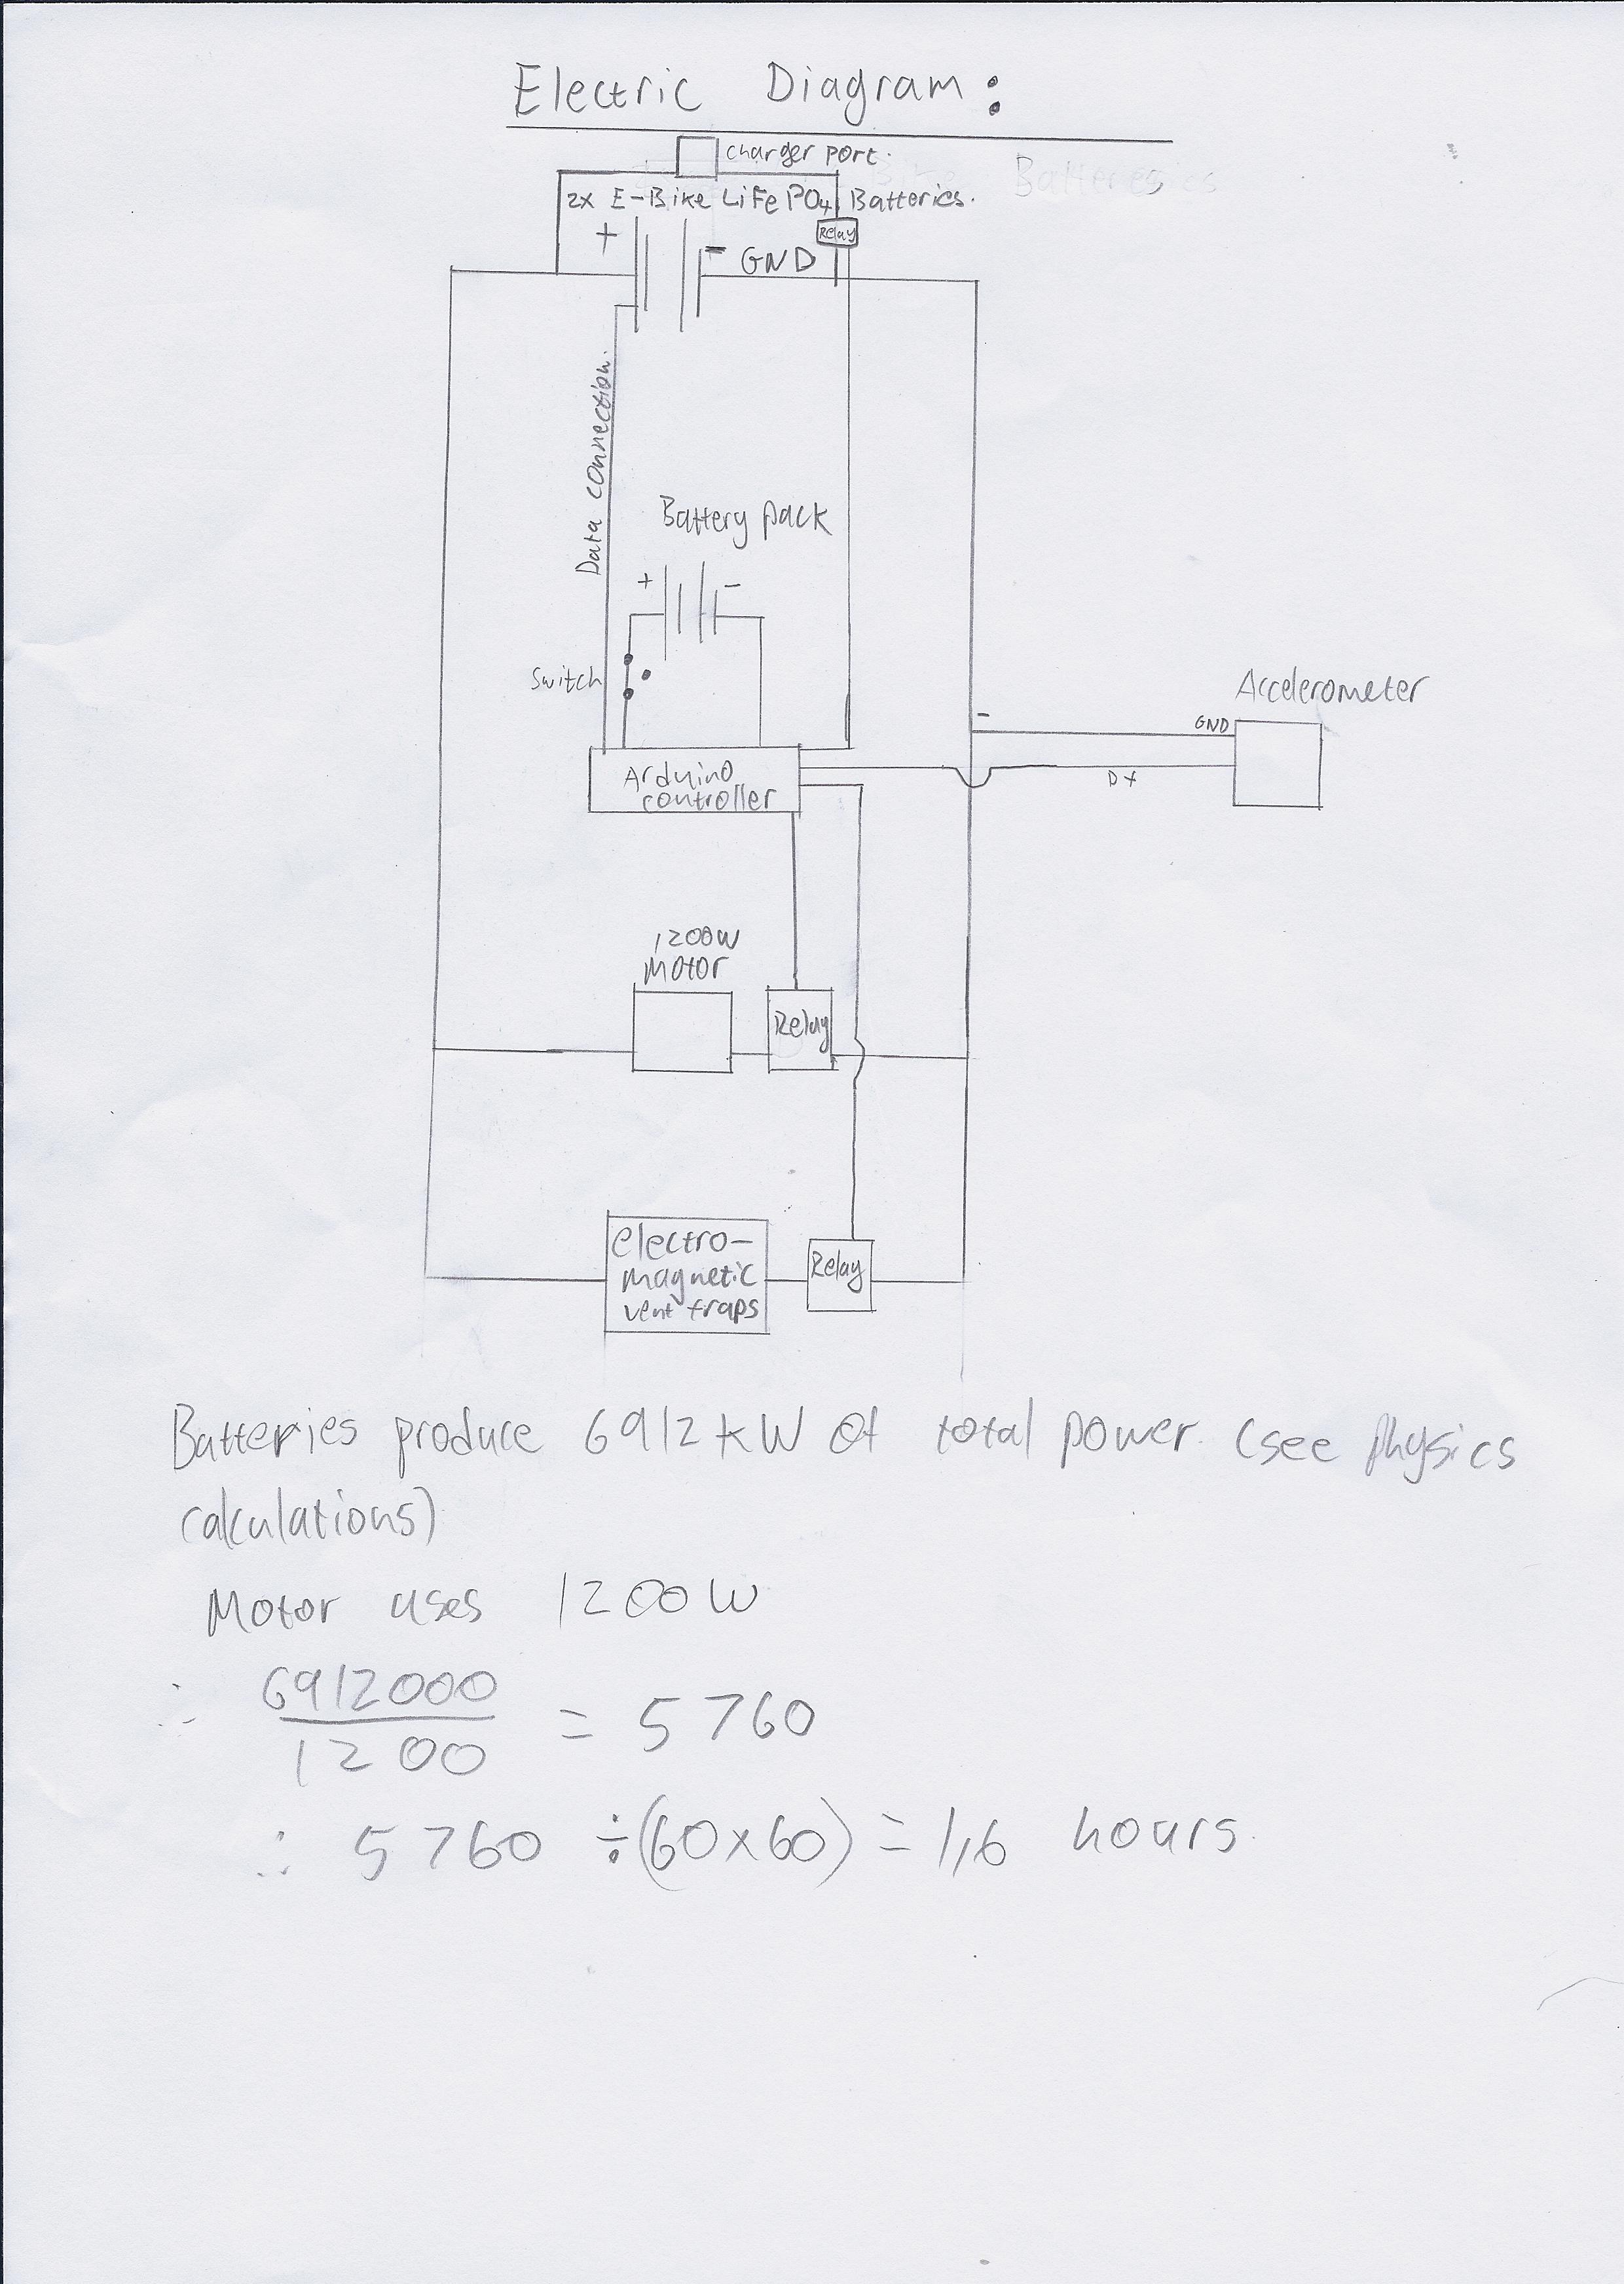 Electric Diagram:
charger port.
2x E-Bike LiFePO4 Batteries.
Relay
+
- GND
Data connection.
Battery pack
+ -
Switch
Accelerometer
-
GND
Arduino
controller
DX
1200W
Motor
Relay
electro-
magnetic
vent traps
Relay
Batteries produce 6912kW of total power (see physics
calculations)
Motor uses 1200W
∴ 6912000
1200
= 5760
∴ 5760 ÷(60x60) = 1,6 hours.